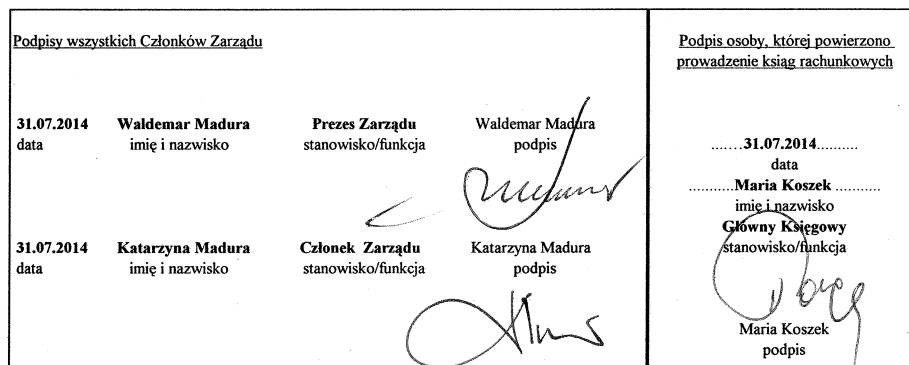 Podpisy wszystkich Członków Zarządu
31.07.2014 Waldemar Madura Prezes Zarządu Waldemar Madura
data imię i nazwisko stanowisko/funkcja podpis
31.07.2014 Katarzyna Madura Członek Zarządu Katarzyna Madura
data imię i nazwisko stanowisko/funkcja podpis
Podpis osoby, której powierzono
prowadzenie ksiąg rachunkowych
.......31.07.2014..........
data
...........Maria Koszek ...........
imię i nazwisko
Główny Księgowy
stanowisko/funkcja
Maria Koszek
podpis